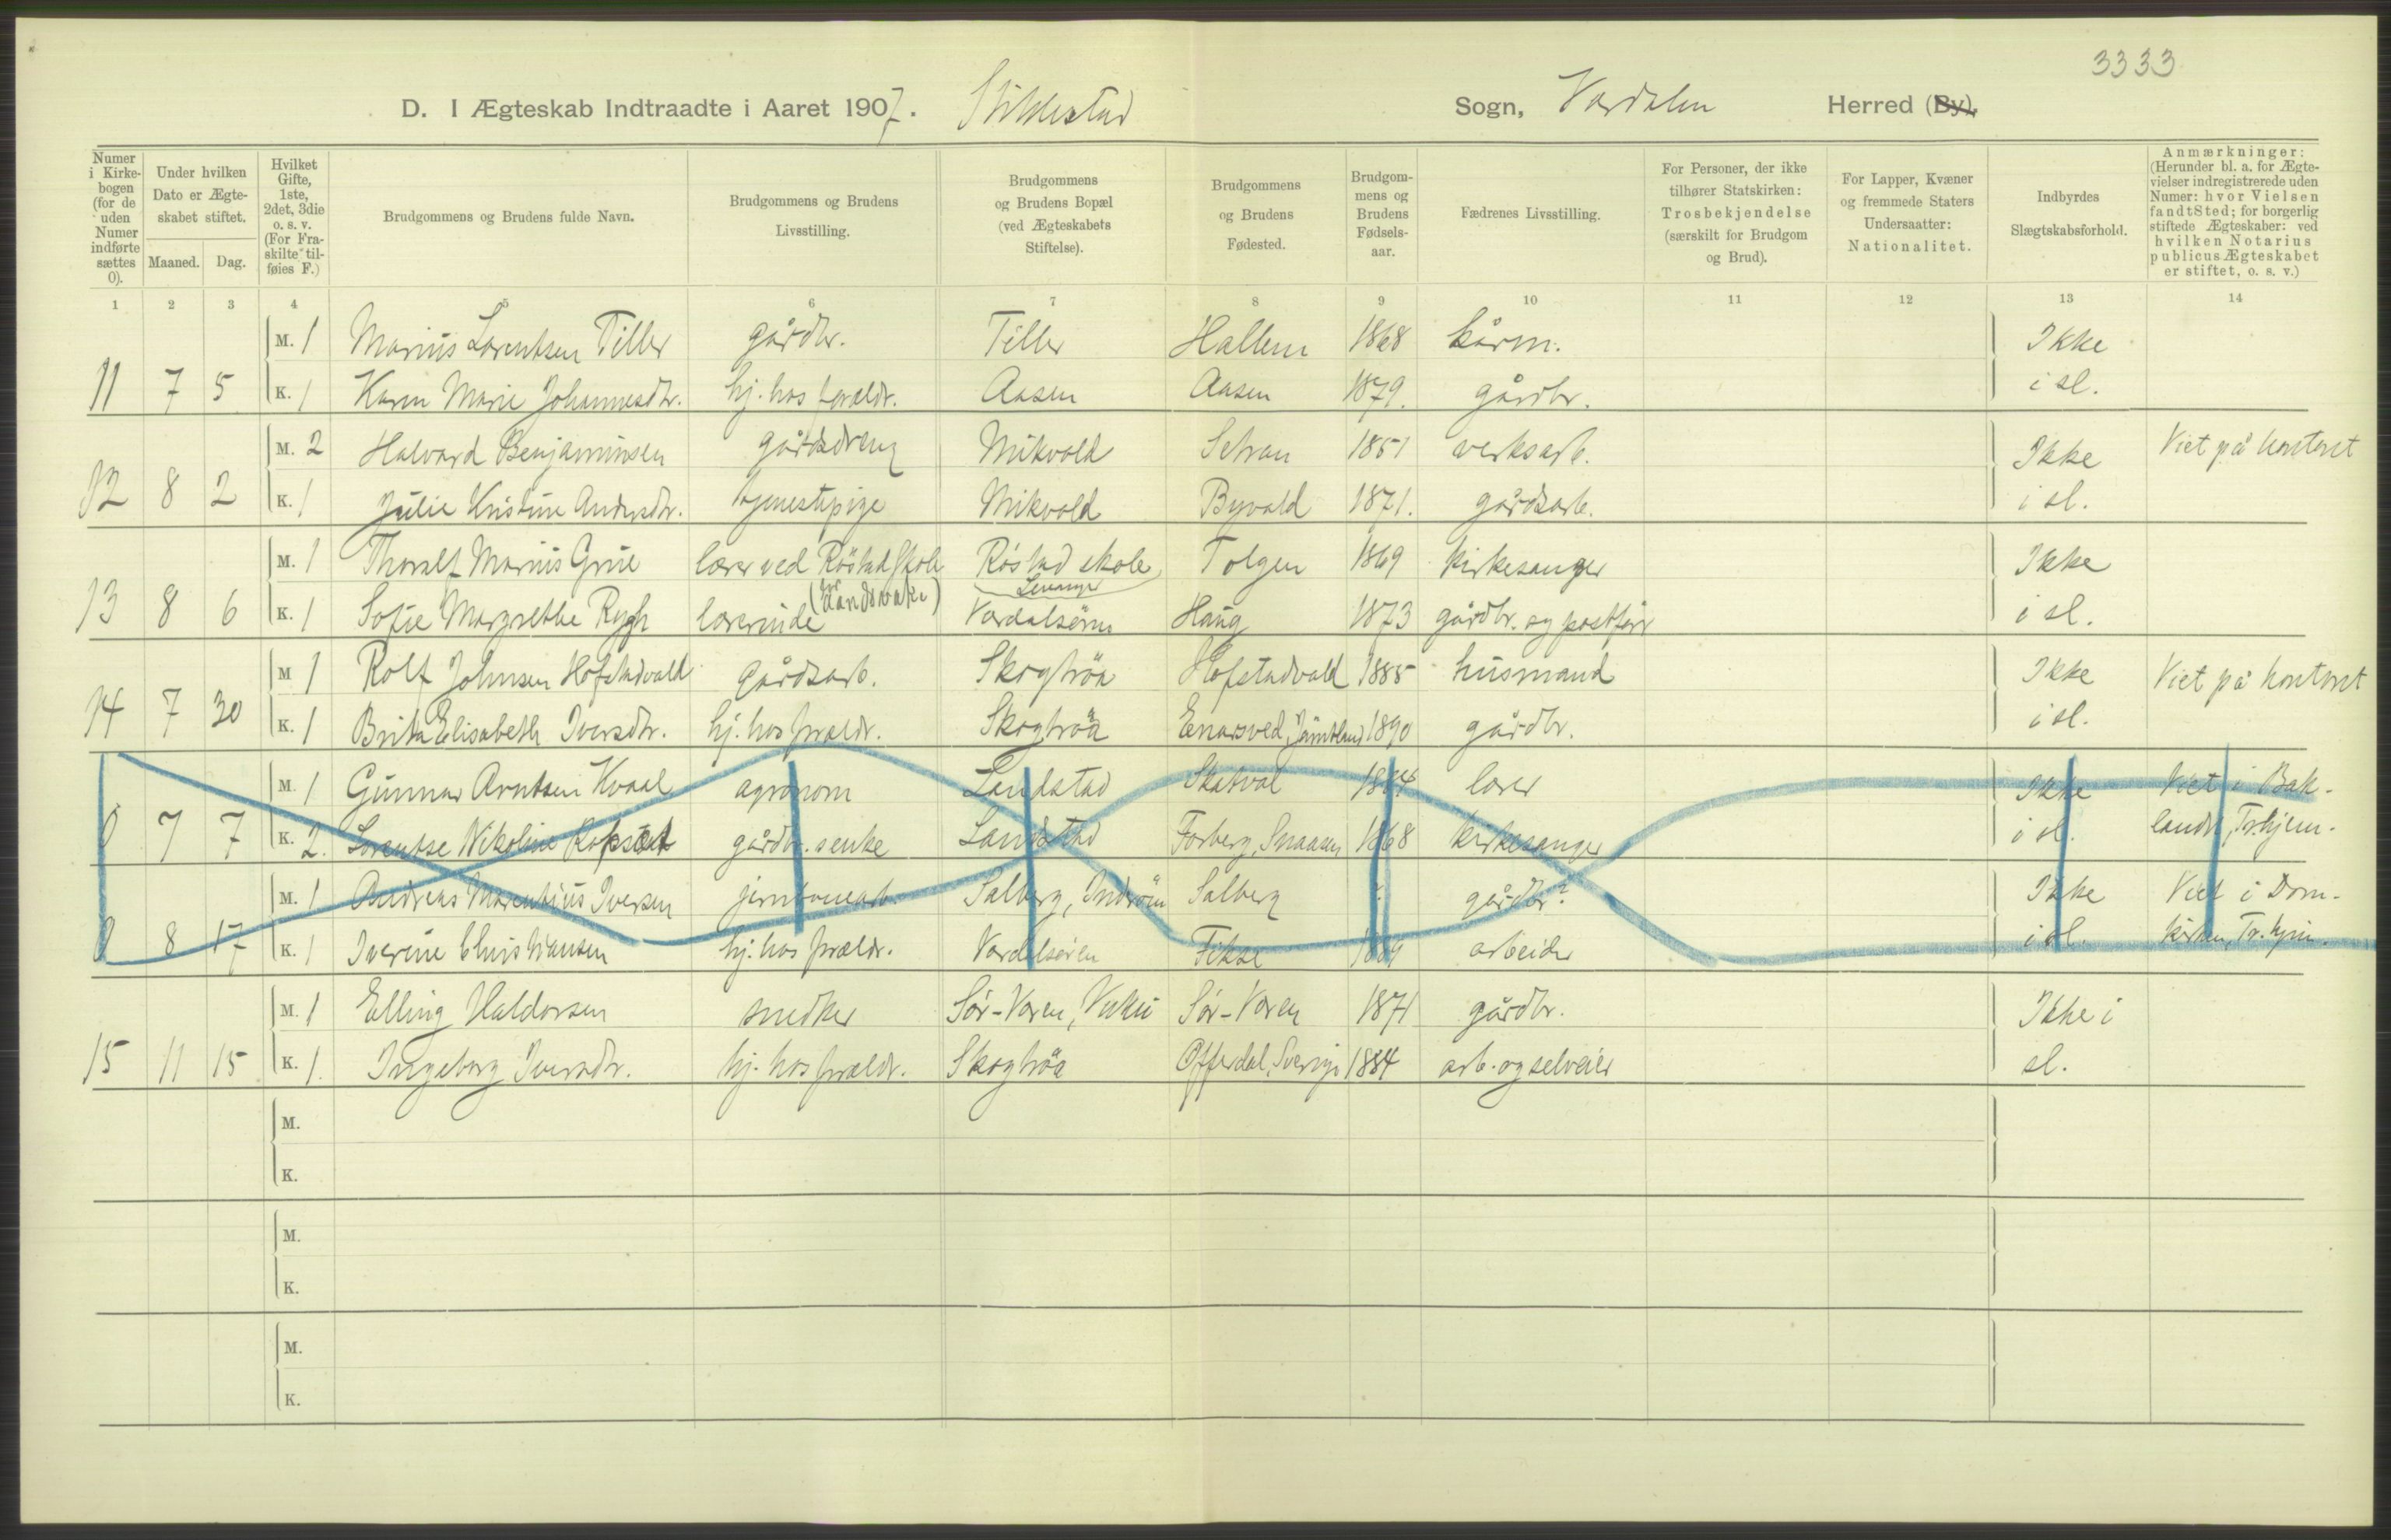 3333
D. I Ægteskab Indtraadte i Aaret 1907. Stiklestad Sogn, Værdalen Herred (By).
Numer i Kirkebogen (for de uden Numer indførte sættes 0).
Under hvilken Dato er Ægteskabet stiftet.
Maaned. Dag.
Hvilket Gifte, 1ste, 2det, 3die o. s. v. (For Fraskilte tilføies F.)
Brudgommens og Brudens fulde Navn.
Brudgommens og Brudens Livsstilling.
Brudgommens og Brudens Bopæl (ved Ægteskabets Stiftelse).
Brudgommens og Brudens Fødested.
Brudgommens og Brudens Fødselsaar.
Fædrenes Livsstilling.
For Personer, der ikke tilhører Statskirken: Trosbekjendelse (særskilt for Brudgom og Brud).
For Lapper, Kvæner og fremmede Staters Undersaatter: Nationalitet.
Indbyrdes Slægtskabsforhold.
Anmærkninger: (Herunder bl. a. for Ægtevielser indregistrerede uden Numer: hvor Vielsen fandt Sted; for borgerlig stiftede Ægteskaber: ved hvilken Notarius publicus Ægteskabet er stiftet, o. s. v.)
1 2 3 4 5 6 7 8 9 10 11 12 13 14
M. 1 Marius Lorentsen Tiller gårdbr. Tiller Hallem 1868 kårm. Ikke
11 7 5 K. 1 Karen Marie Johannesdtr. hj. hos forældr. Aasen Aasen 1879. gårdbr. i sl.
M. 2 Halvard Benjaminsen gårdsdreng Mikvold Selran 1851 verksarb. Ikke Viet på kontoret
12 8 2 K. 1 Julie Kristine Andersdtr. tjenestepige Mikvold Byvald 1871. gårdsarb. i sl.
M. 1 Thoralf Marius Grue lærer ved Röstad skole Röstad skole Tolgen 1869 kirkesanger Ikke
Levanger
13 8 6 K. 1 Sofie Margrethe Rygh lærerinde Værdalsören Haug 1873 gårdbr. og postfør i sl.
M 1 Rolf Johnsen Hofstadvald gårdsarb. Skogtröa Hofstadvald 1885 husmand Ikke Viet på kontoret
14 7 30 K. 1 Brita Elisabeth Iversdtr. hj. hos foræld. Skogtröa Enarsved, Jämtland 1890 gårdbr. i sl.
M. 1 Gunnar Arntsen Kvaal agronom Landstad Skatval lærer Ikke Viet i Bak-
0 7 7 K. 2. Lorentse Nikoline gårdbr. enke Landstad Forberg, Snaasen 1868 kirkesanger i sl. landet, Tr.hjem.
M. 1 Andreas Marentius Iversen Salberg, Inderöen Salberg ? gårdbr? Ikke Viet i Dom-
0 8 17 K. 1 Iverine Christiansen hj. hos foræld. Værdalsören Fikse arbeider i sl. kirken, Tr.hjem.
M. 1 Elling Haldorsen snedker Sör-Væren, Vuku Sör-Væren 1871 gårdbr. Ikke i
15 11 15 K. 1 Ingeborg Iversdtr. hj. hos foræld. Skogtröa Offerdal, Sverige 1884 arb. og selveier sl.
M.
K.
M.
K.
M.
K.